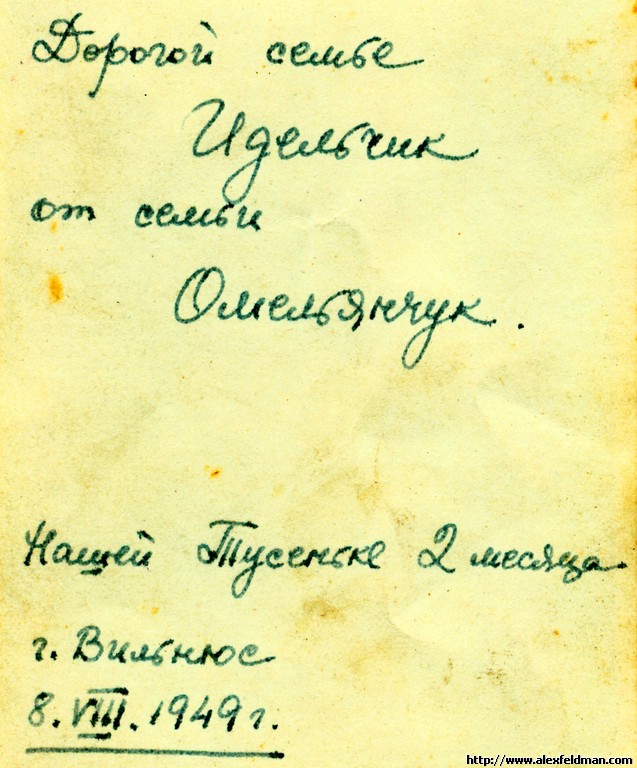 Дорогой семье
Идельчик
от семьи
Омельянчук.
Нашей Тусеньке 2 месяца.
г. Вильнюс
8. VIII. 1949 г.
http://www.alexfeldman.com